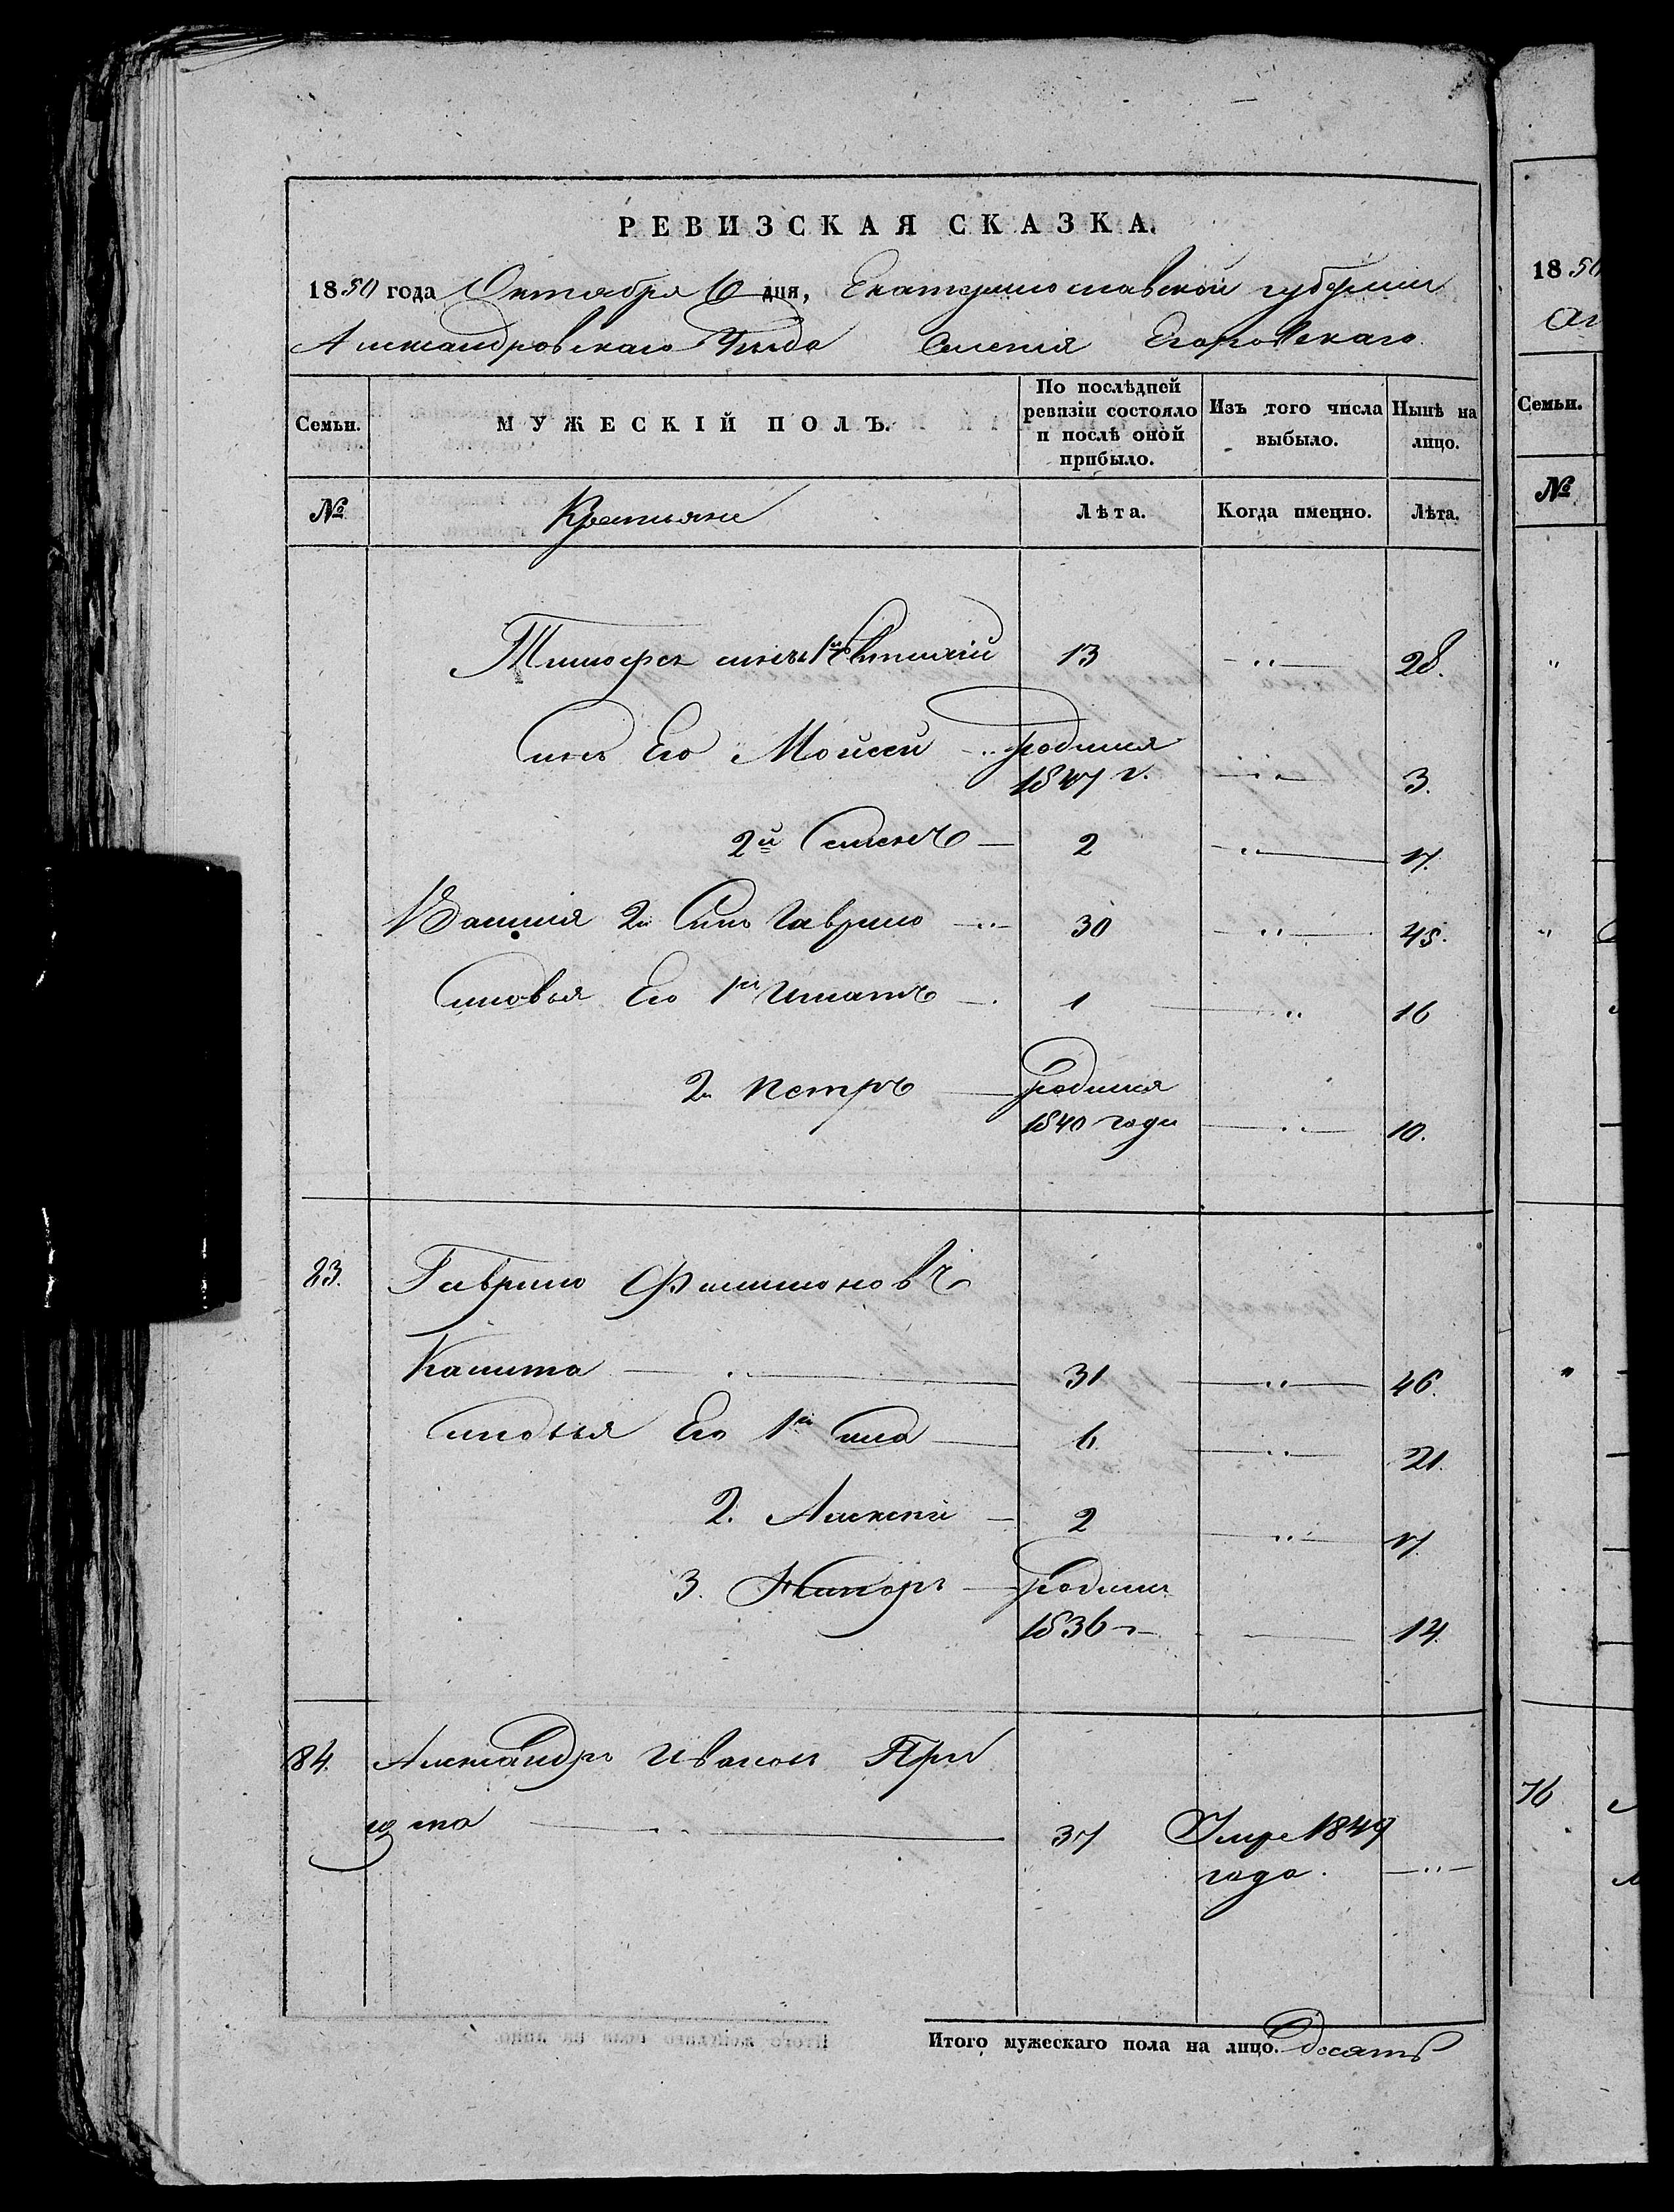 РЕВИЗСКАЯ СКАЗКА.
1850 года Октября 6 дня, Екатеринославской губернии
Александровскаго Уезда Селения Егоровскаго
Семьи. МУЖЕСКІЙ ПОЛЪ. По послѣдней ревизіи состояло и послѣ оной прибыло. Изъ того числа выбыло. Нынѣ на лицо.
№ Крестьяне Лѣта. Когда именно. Лѣта.
Тимофея сынъ 1й 13 28.
Сынъ Его Моисей родился
1847 г. 3.
2й Семенъ 2 17.
Василия 2й Сынъ Гаврило 30 45.
Сыновья Его 1й Игнатъ 1 16
2й Петръ родился
1840 года 10.
23. Гаврило Филимоновъ
Калита 31 46.
Сыновья Его 1й 6 21
2. Алексей 2 17
3. родился
1836 г 14
84. Александръ Ивановъ При
щепа 37 Умре 1849
года.
Итого мужескаго пола на лицо. Десять
1850
Семьи.
№
76